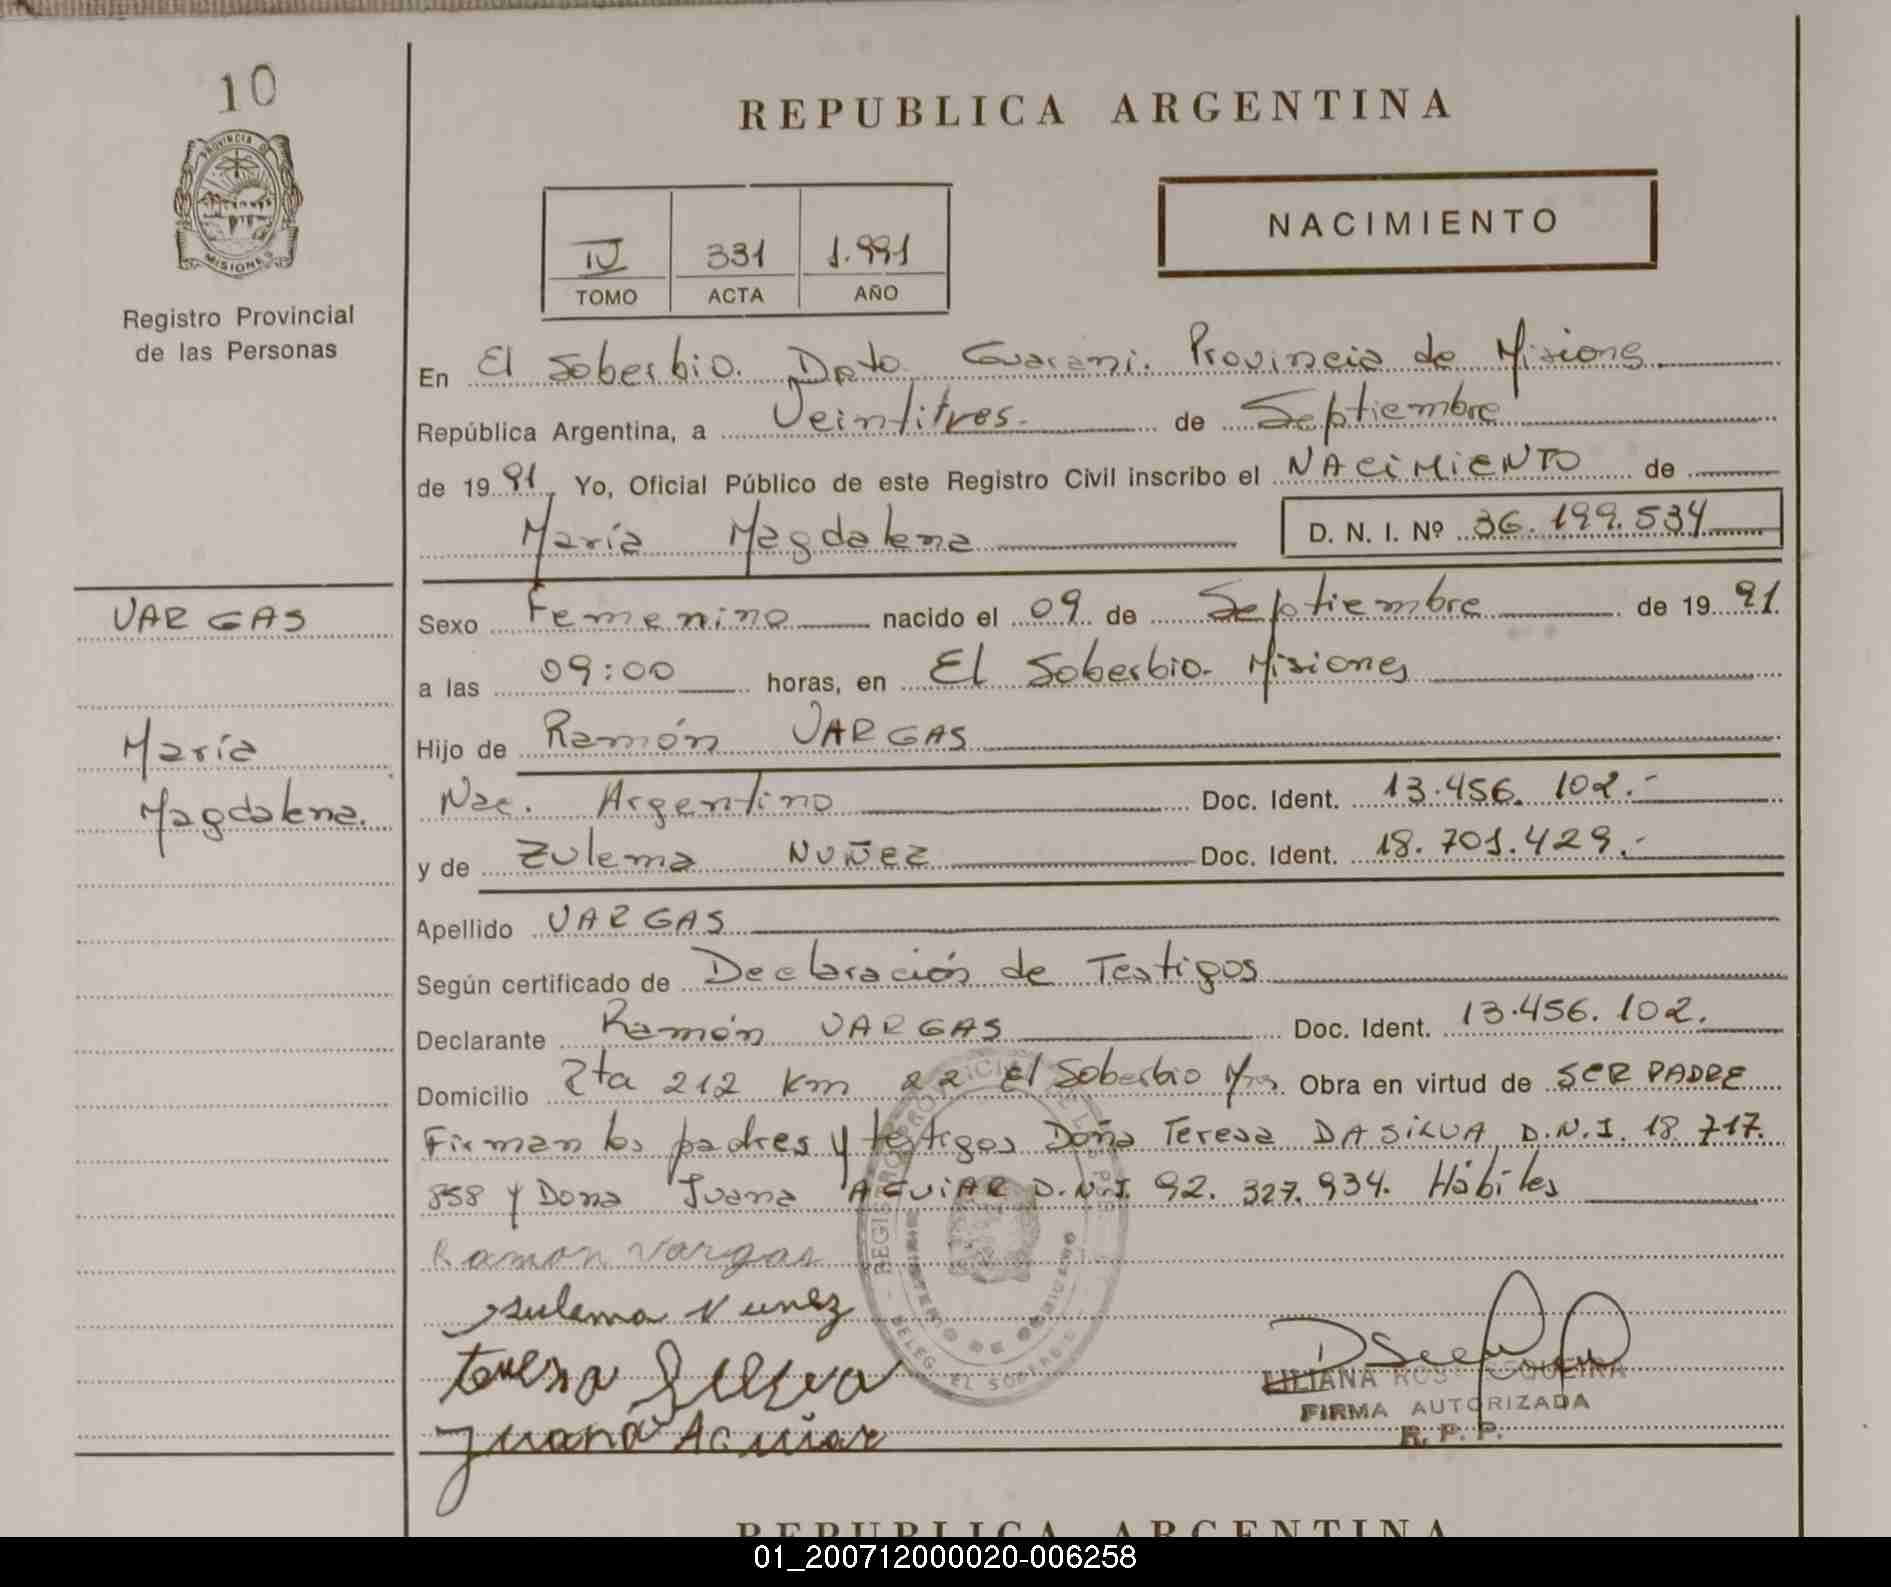 10
REPUBLICA ARGENTINA
PROVINCIA DE
MISIONES
Registro Provincial
de las Personas
NACIMIENTO
IV 331 1.991
TOMO ACTA AÑO
En El Soberbio. Dpto Guaraní. Provincia de Misiones
República Argentina, a Veintitres. de Septiembre
de 1991, Yo, Oficial Público de este Registro Civil inscribo el NACIMIENTO de
María Magdalena D. N. I. Nº 36.199.534
VARGAS
María
Magdalena.
Sexo Femenino nacido el 09 de Septiembre de 1991
a las 09:00 horas, en El Soberbio. Misiones
Hijo de Ramón VARGAS
Nac. Argentino Doc. Ident. 13.456.102.-
y de Zulema NUÑEZ Doc. Ident. 18.701.429.-
Apellido VARGAS
Según certificado de Declaración de Testigos
Declarante Ramón VARGAS Doc. Ident. 13.456.102.
Domicilio Rta 212 Km 22 El Soberbio Mns Obra en virtud de SER PADRE
Firman los padres y testigos Doña Teresa DA SILVA D.N.I. 18.717.
858 y Dona Juana AGUIAR D.N.I. 92.327.934. Hábiles
Ramon Vargas
Zulema Nunez
Teresa Silva
Juana Aguiar
LILIANA ROSA SEQUEIRA
FIRMA AUTORIZADA
R. P. P.
REPUBLICA ARGENTINA
01_200712000020-006258